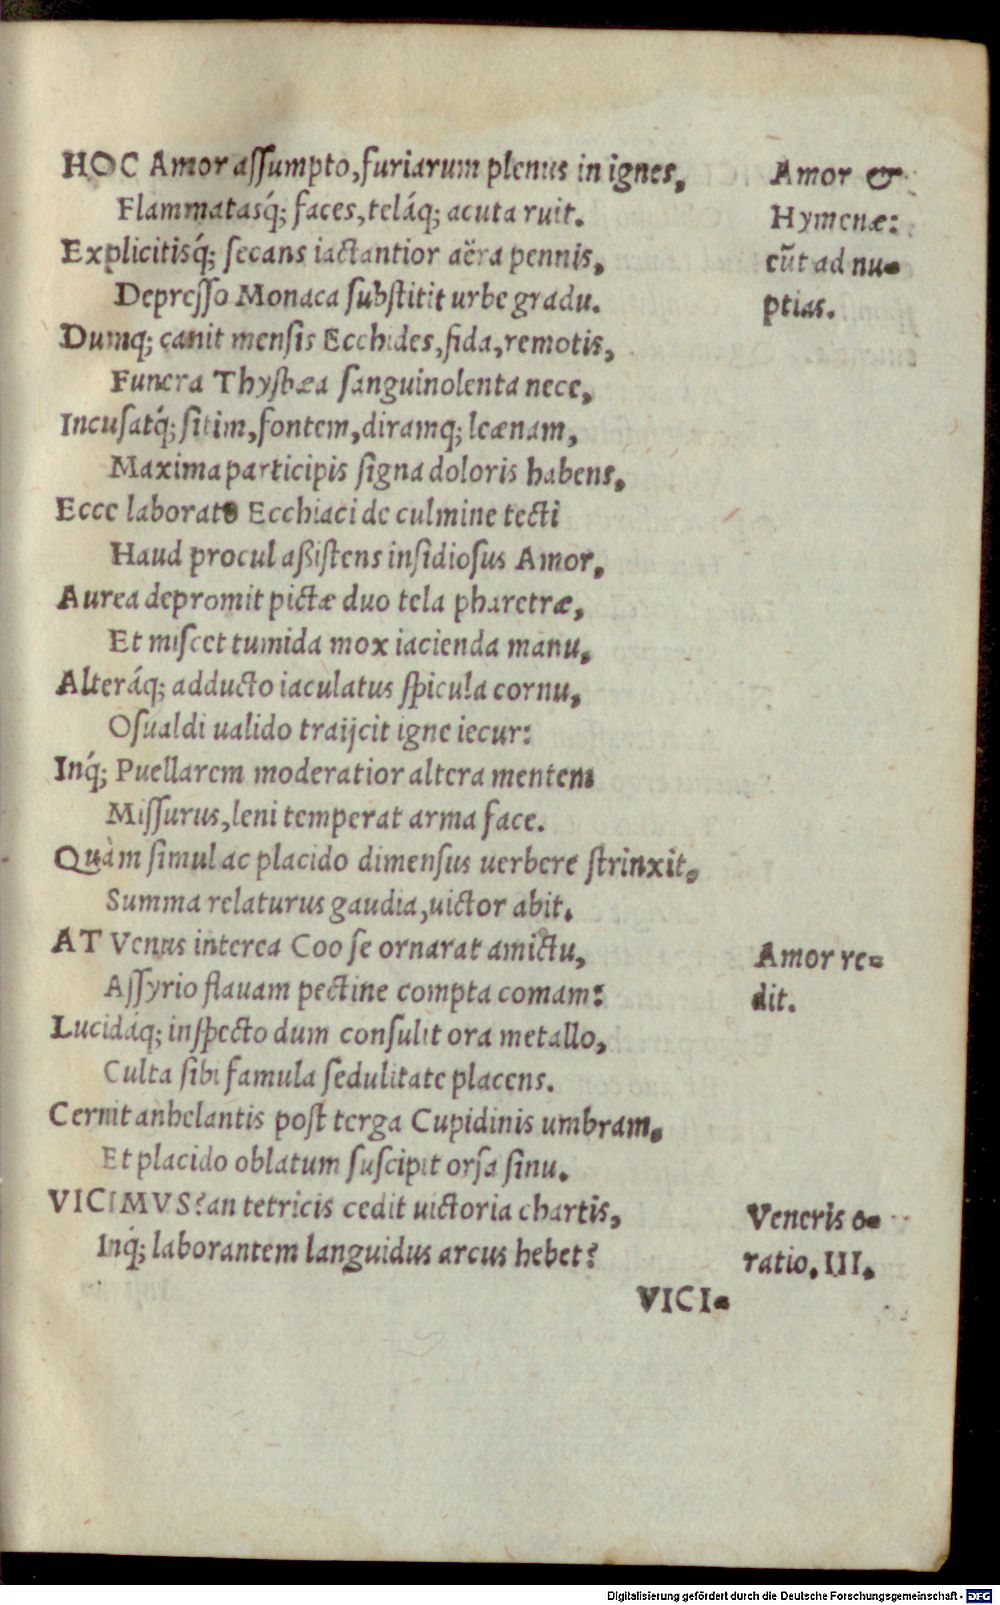 HOC Amor assumpto, furiarum plenus in ignes,
Flammatasq́; faces, teláq; acuta ruit.
Explicitisq́; secans iactantior aëra pennis,
Depresso Monaca substitit urbe gradu.
Dumq; canit mensis Ecchides, fida, remotis,
Funera Thysbæa sanguinolenta nece,
Incusatq́; sitim, fontem, diramq; leænam,
Maxima participis signa doloris habens,
Ecce laborato Ecchiaci de culmine tecti
Haud procul aßistens insidiosus Amor,
Aurea depromit pictæ duo tela pharetræ,
Et miscet tumida mox iacienda manu,
Alteráq; adducto iaculatus spicula cornu,
Osualdi ualido traijcit igne iecur:
Inq́; Puellarem moderatior altera mentem
Missurus, leni temperat arma face.
Quàm simul ac placido dimensus uerbere strinxit,
Summa relaturus gaudia, uictor abit.
AT Venus interea Coo se ornarat amictu,
Assyrio flauam pectine compta comam:
Lucidáq; inspecto dum consulit ora metallo,
Culta sibi famula sedulitate placens.
Cernit anhelantis post terga Cupidinis umbram,
Et placido oblatum suscipit orsa sinu.
VICIMVS? an tetricis cedit uictoria chartis,
Inq́; laborantem languidus arcus hebet?
VICI-
Amor &
Hymenæ:
cũt ad nu-
ptias.
Amor re-
dit.
Veneris o-
ratio. III.
Digitalisierung gefördert durch die Deutsche Forschungsgemeinschaft - DFG